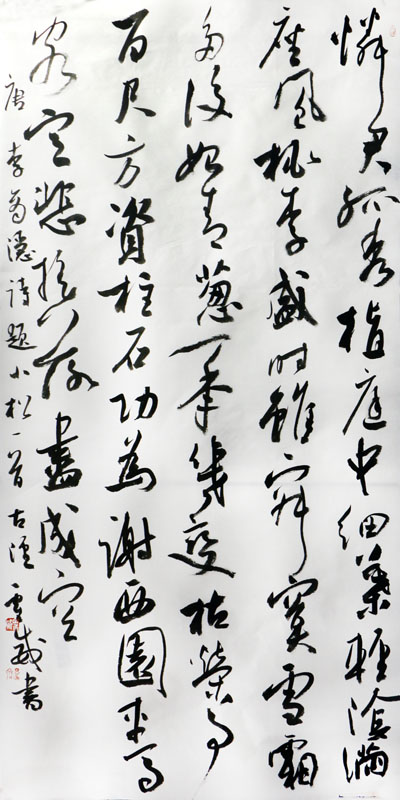 憐君孤秀植庭中細葉輕陰滿
座風桃李盛時雖寂寞雪霜
多後始青蔥一年幾變枯榮事
百尺方資柱石功為謝西園車馬
客定悲搖落盡成空
唐李商隱詩題小松一首古威書